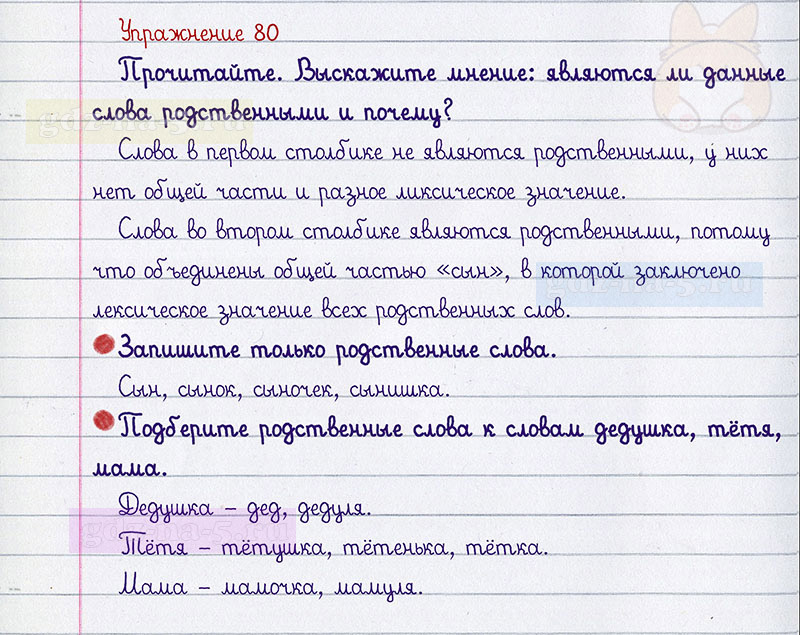 Упражнение 80
Прочитайте. Выскажите мнение: являются ли данные
слова родственными и почему?
Слова в первом столбике не являются родственными, у них
нет общей части и разное ликсическое значение.
Слова во втором столбике являются родственными, потому
что объединены общей частью «сын», в которой заключено
лексическое значение всех родственных слов.
Запишите только родственные слова.
Сын, сынок, сыночек, сынишка.
Подберите родственные слова к словам дедушка, тётя,
мама.
Дедушка – дед, дедуля.
Тётя – тётушка, тётенька, тётка.
Мама – мамочка, мамуля.